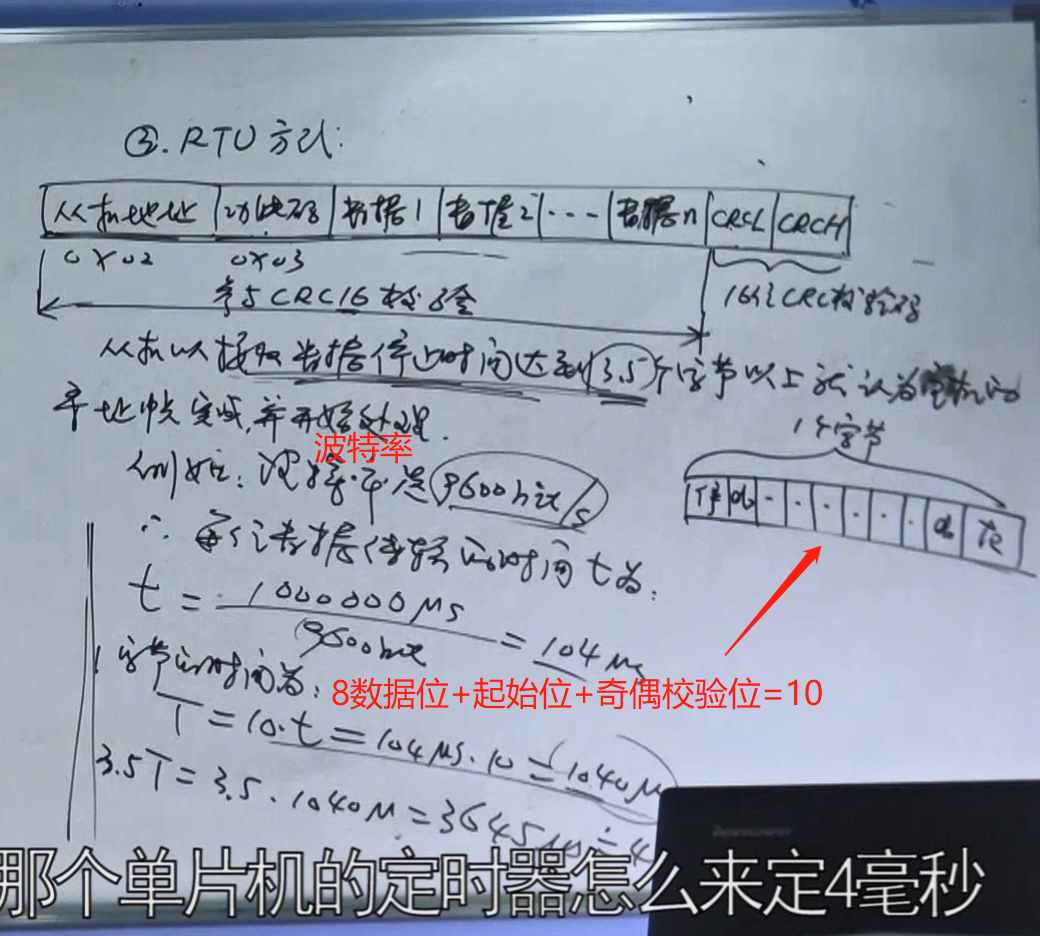 ③. RTU 方式:
从机地址 功能码 数据1 数据2 ... 数据n CRCL CRCH
0x02 0x03
参与CRC16校验 16位CRC校验码
从机以接收数据停止时间达到3.5个字节以上就认为
寻址帧完成,并开始处理.
1个字节
波特率
例如: 波特率是9600bit/s
停 d . . . . . . d 起
∴ 每个位数据传输的时间t为:
t = 1000000μs / 9600bit = 104μs
1字节的时间为:
8数据位+起始位+奇偶校验位=10
T = 10·t = 104μs·10 = 1040μs
3.5T = 3.5·1040μ = 3645μs ≐ 4
lenovo
那个单片机的定时器怎么来定4毫秒